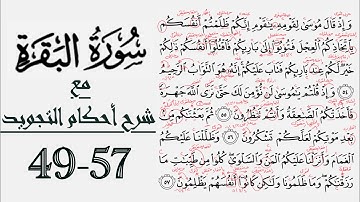 سورة البقرة
مع
شرح أحكام التجويد
49-57
وَإِذْ قَالَ مُوسَىٰ لِقَوْمِهِ يَٰقَوْمِ إِنَّكُمْ ظَلَمْتُمْ أَنفُسَكُم
بِاتِّخَاذِكُمُ الْعِجْلَ فَتُوبُوا إِلَىٰ بَارِئِكُمْ فَاقْتُلُوا أَنفُسَكُمْ ذَٰلِكُمْ
خَيْرٌ لَّكُمْ عِندَ بَارِئِكُمْ فَتَابَ عَلَيْكُمْ إِنَّهُ هُوَ التَّوَّابُ الرَّحِيمُ
٥٤ وَإِذْ قُلْتُمْ يَٰمُوسَىٰ لَن نُّؤْمِنَ لَكَ حَتَّىٰ نَرَى اللَّهَ جَهْرَةً
فَأَخَذَتْكُمُ الصَّٰعِقَةُ وَأَنتُمْ تَنظُرُونَ ٥٥ ثُمَّ بَعَثْنَٰكُم مِّن
بَعْدِ مَوْتِكُمْ لَعَلَّكُمْ تَشْكُرُونَ ٥٦ وَظَلَّلْنَا عَلَيْكُمُ
الْغَمَامَ وَأَنزَلْنَا عَلَيْكُمُ الْمَنَّ وَالسَّلْوَىٰ كُلُوا مِن طَيِّبَٰتِ مَا
رَزَقْنَٰكُمْ وَمَا ظَلَمُونَا وَلَٰكِن كَانُوا أَنفُسَهُمْ يَظْلِمُونَ ٥٧